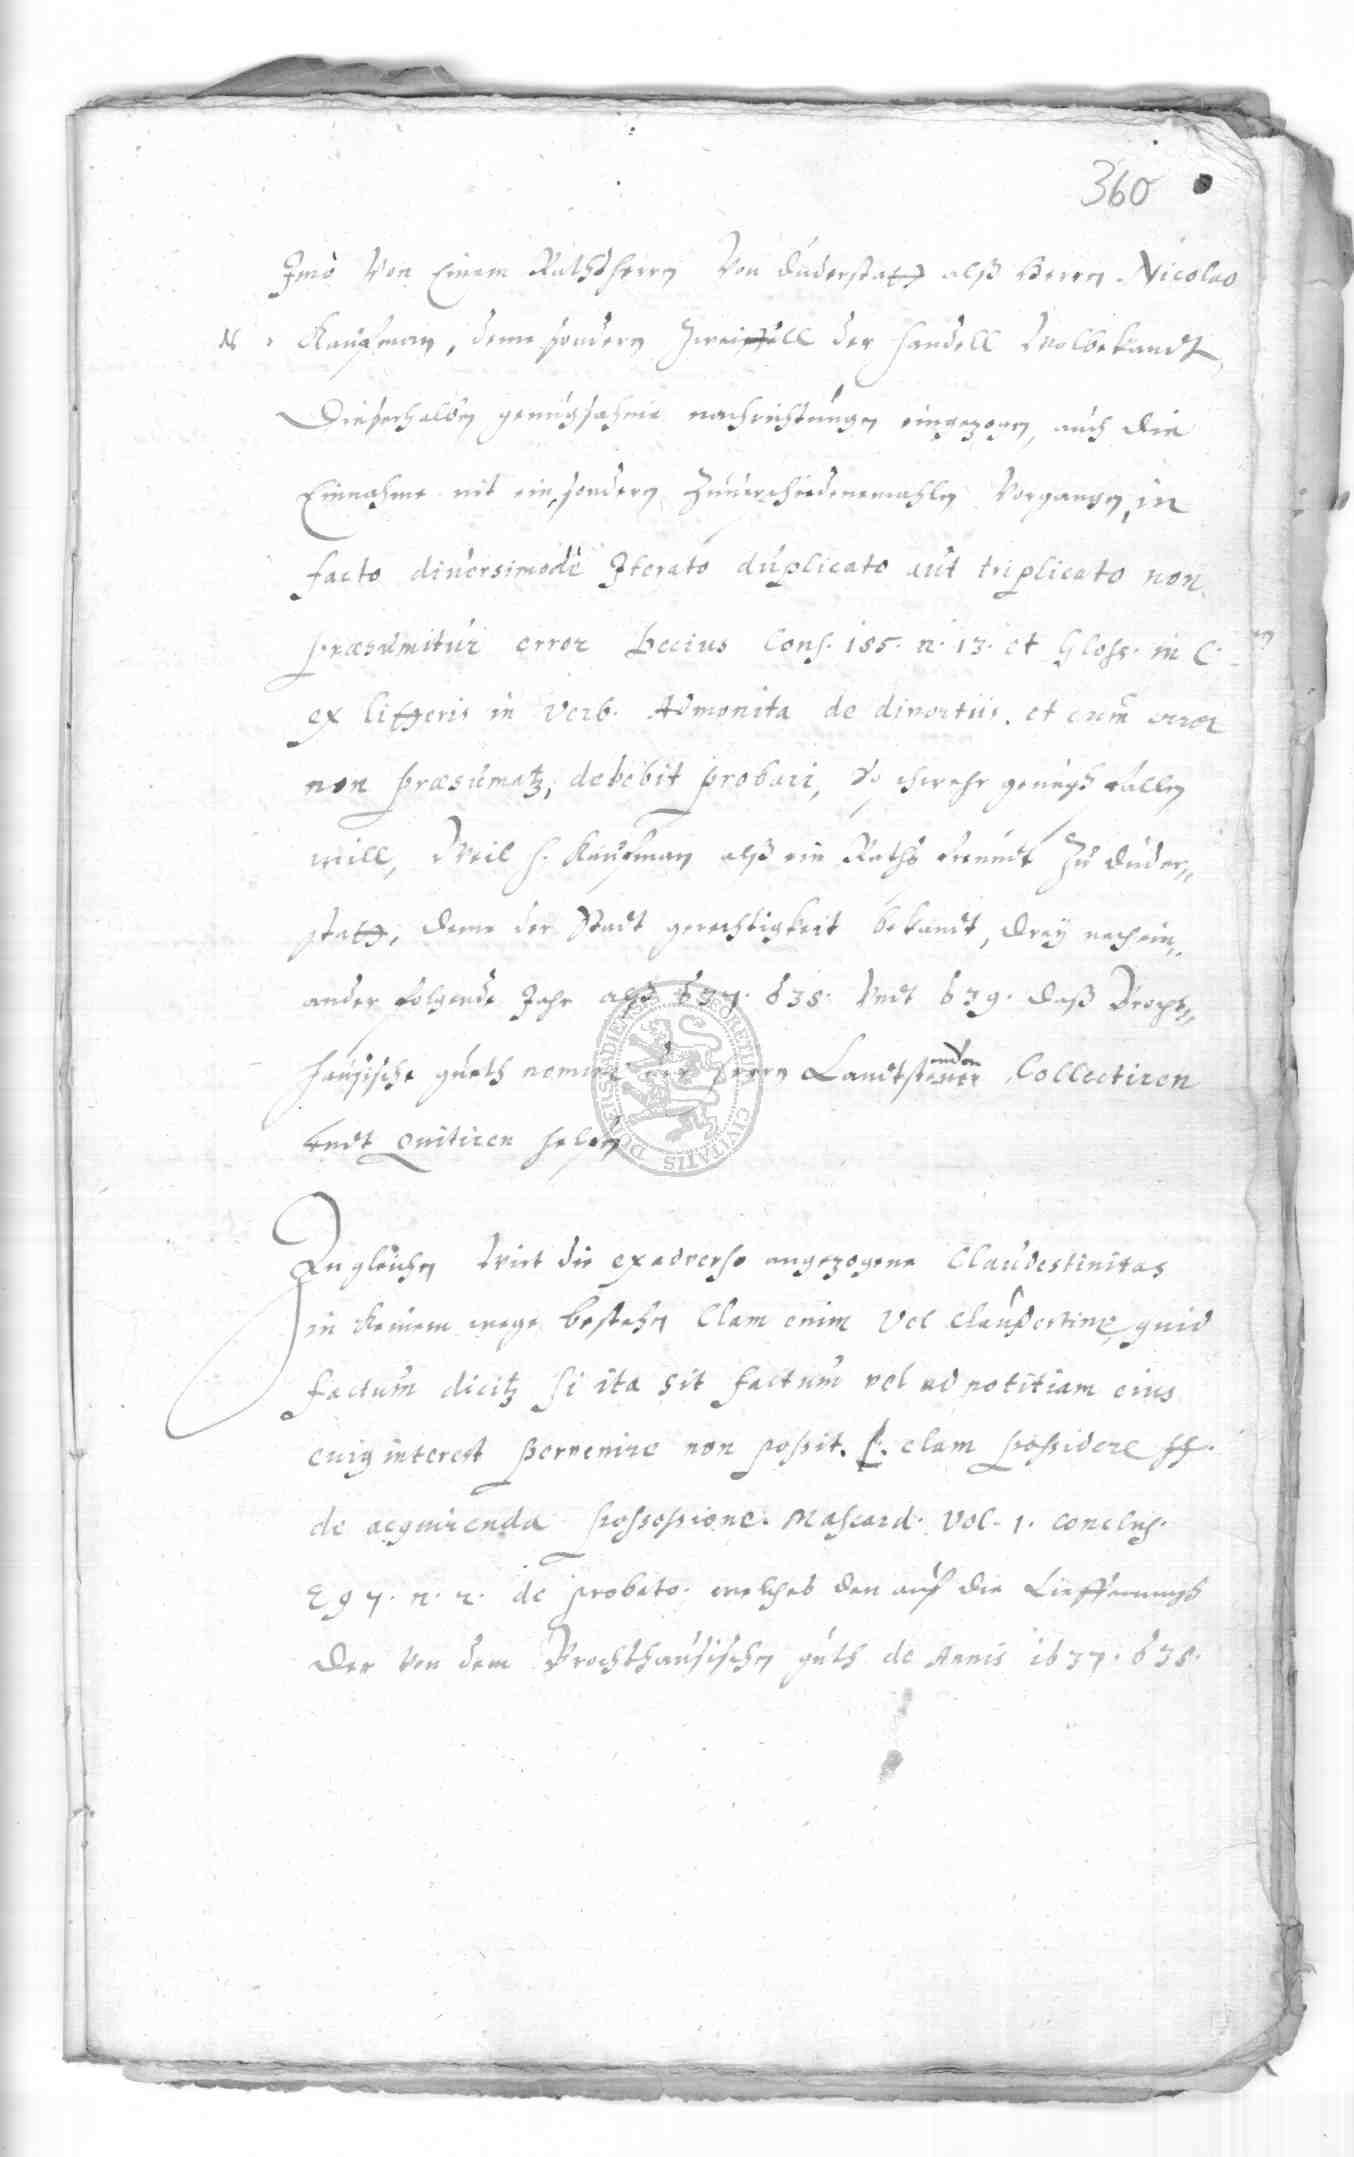 360
Imò Von Einem Rathsherrn Von Duderstatt alß Herrn Nicolao
Kauffman, deme sondern Zweiffell der handell Wolbekandt
Dieserhalben genugsahme nachrichtungen eingezogen, auch die
Einnahme nit ein, sondern Zuuerschiedenemahlen Vorgangen, in
facto diuersimodè Iterato duplicato aut triplicato non
præsumitur error Decius Cons. 155. n. 13. et Gloss. in C.
ex litteris in Verb. Admonita de divortiis. et cum error
non præsumatz, debebit probari, So schwehr genugh fallen
will, Weil H. Kauffman alß ein Raths freundt Zu Duder„
statt, deme der Stadt gerechtigkeit bekandt, drey nachein„
ander folgende Jahr alß 637. 638. Vndt 639. daß Brocht„
hausische guth nomine der Herrn Landtstenden Collectiren
Vndt quitiren helffen
In gleichen Wirt die ex adverso angezogene Clandestinitas
in keinem wege bestehen Clam enim Vel Clandestine quid
factum dicitz si ita sit factum vel ad notitiam eius
cuius interest pervenire non possit. l. clam possidere ff.
de acquirenda possessione. Mascard. Vol. 1. conclus.
297. n. 2. de probato. welches dan auf die Lieffernugh
der Von dem Brochthausischen guth de Annis 1637. 638.
DUDERSTADIENSIS SECRETUM CIVITATIS